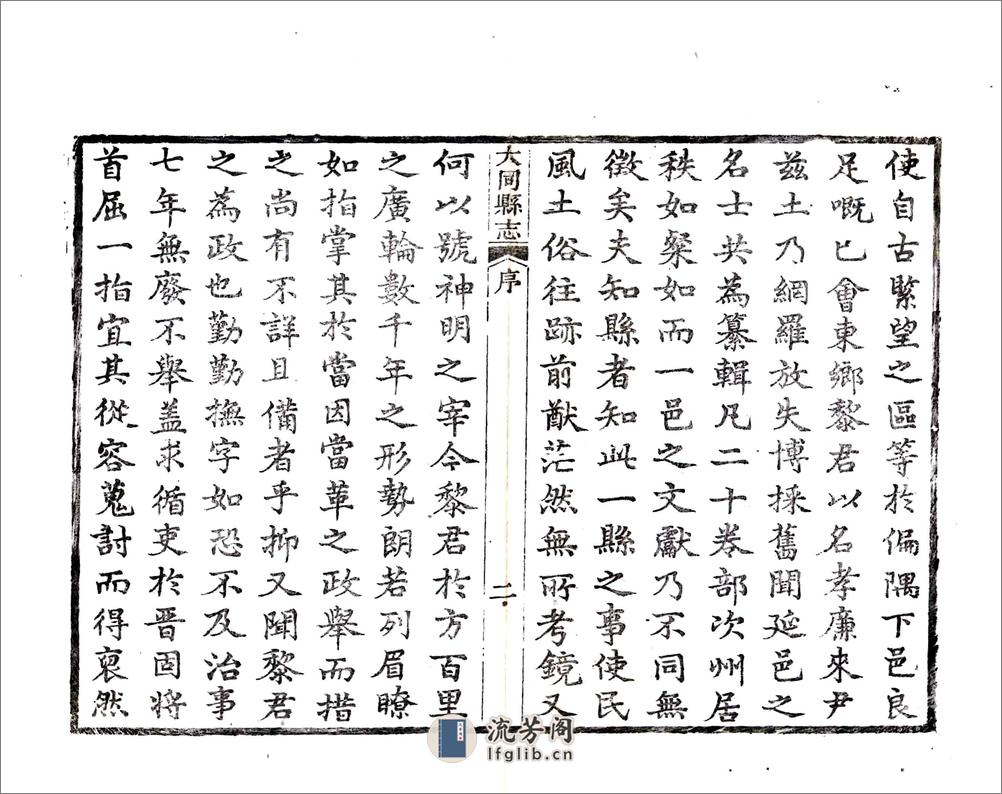 使自古緊望之區等於偏隅下邑良
足嘅已會東鄉黎君以名孝廉來尹
茲土乃網羅放失博採舊聞延邑之
名士共為纂輯凡二十卷部次州居
秩如粲如而一邑之文獻乃不同無
徵矣夫知縣者知此一縣之事使民
風土俗往跡前猷茫然無所考鏡又
大同縣志
序
二
何以號神明之宰今黎君於方百里
之廣輪數千年之形勢朗若列眉瞭
如指掌其於當因當革之政舉而措
之尚有不詳且備者乎抑又聞黎君
之為政也勤勤撫字如恐不及治事
七年無廢不舉盖求循吏於晉固將
首屈一指宜其從容蒐討而得裒然
流芳阁
lfglib.cn